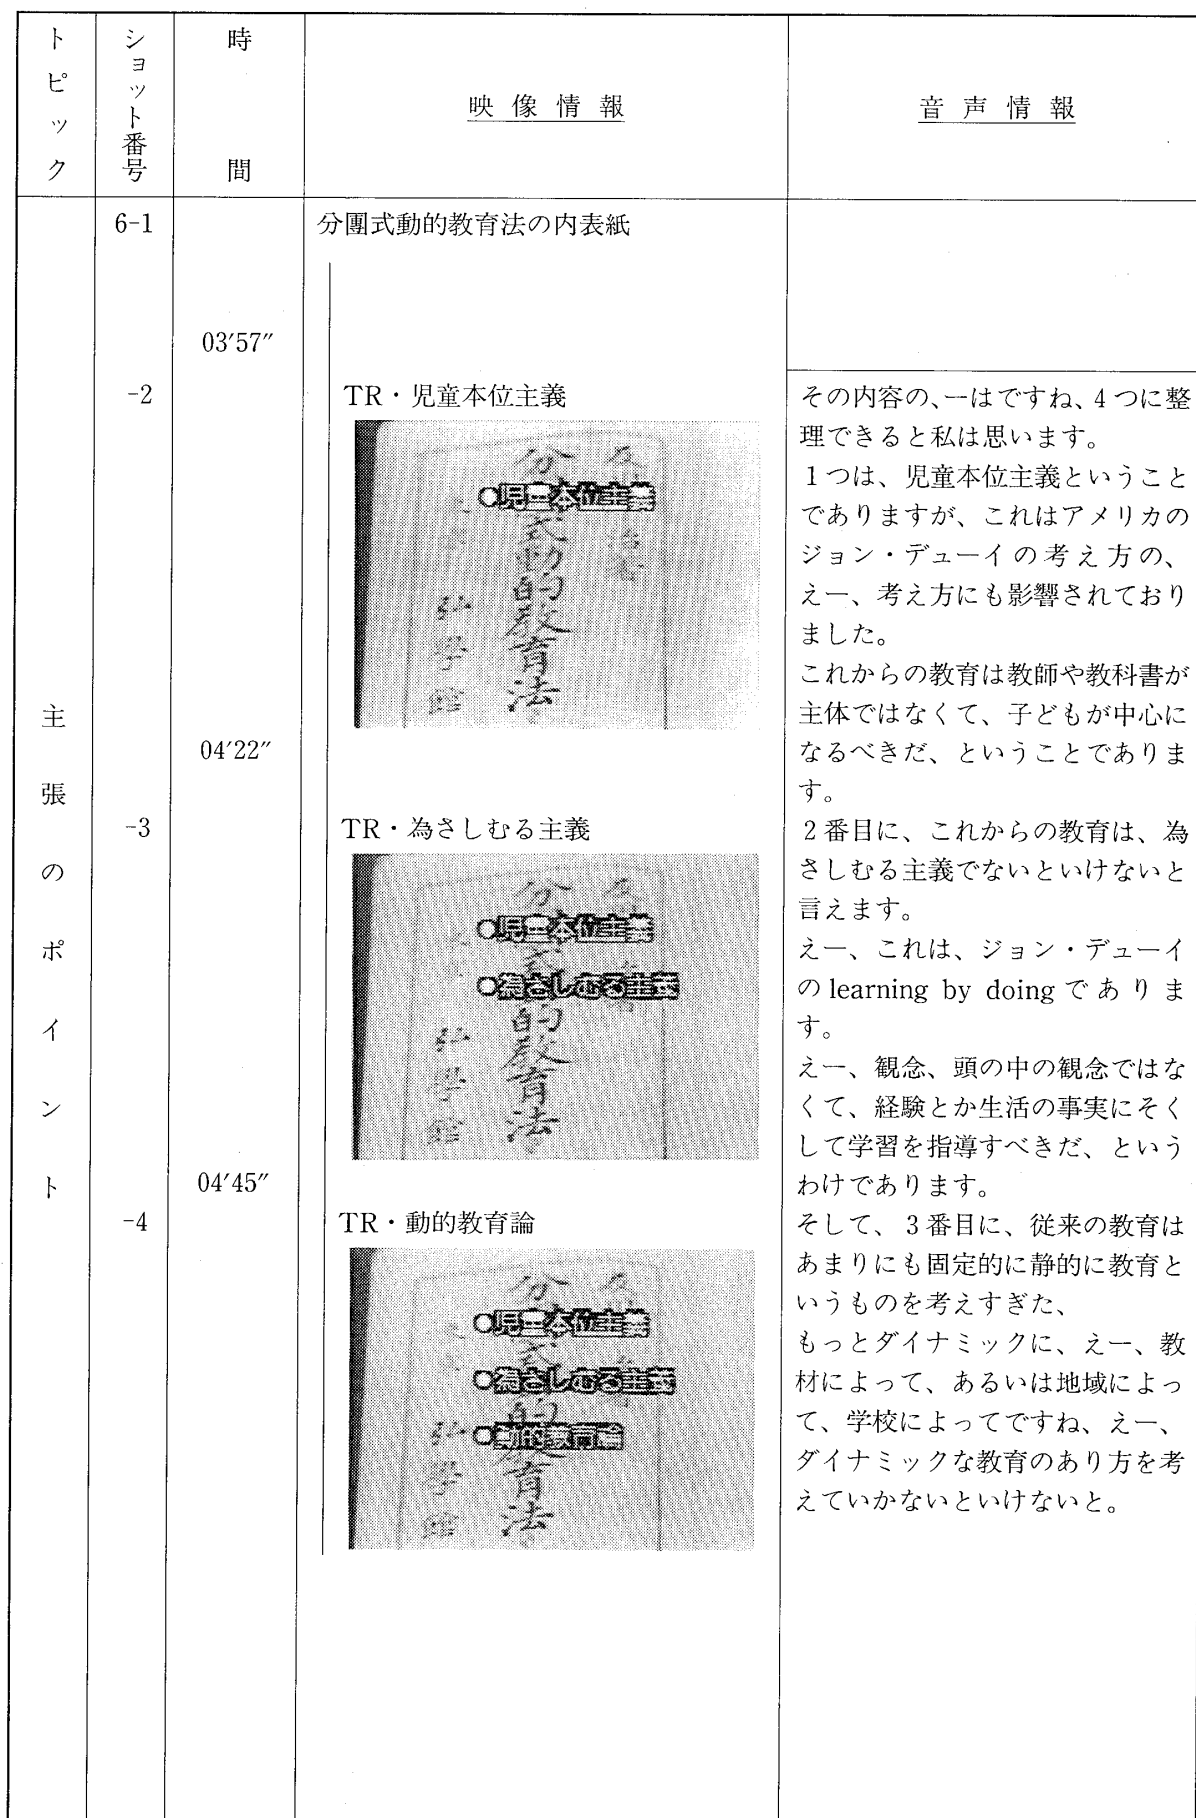 トピック
ショット番号
時間
映像情報
音声情報
主張のポイント
6-1
分團式動的教育法の内表紙
03′57″
-2
TR・児童本位主義
○児童本位主義
分
式動的教育法
弘學館
その内容の、ーはですね、4つに整
理できると私は思います。
1つは、児童本位主義ということ
でありますが、これはアメリカの
ジョン・デューイの考え方の、
えー、考え方にも影響されており
ました。
これからの教育は教師や教科書が
主体ではなくて、子どもが中心に
なるべきだ、ということでありま
す。
04′22″
-3
TR・為さしむる主義
分
○児童本位主義
○為さしむる主義
的教育法
弘學館
2番目に、これからの教育は、為
さしむる主義でないといけないと
言えます。
えー、これは、ジョン・デューイ
のlearning by doingでありま
す。
えー、観念、頭の中の観念ではな
くて、経験とか生活の事実にそく
して学習を指導すべきだ、という
わけであります。
04′45″
-4
TR・動的教育論
分
○児童本位主義
○為さしむる主義
○動的教育論
育法
弘學館
そして、3番目に、従来の教育は
あまりにも固定的に静的に教育と
いうものを考えすぎた、
もっとダイナミックに、えー、教
材によって、あるいは地域によっ
て、学校によってですね、えー、
ダイナミックな教育のあり方を考
えていかないといけないと。